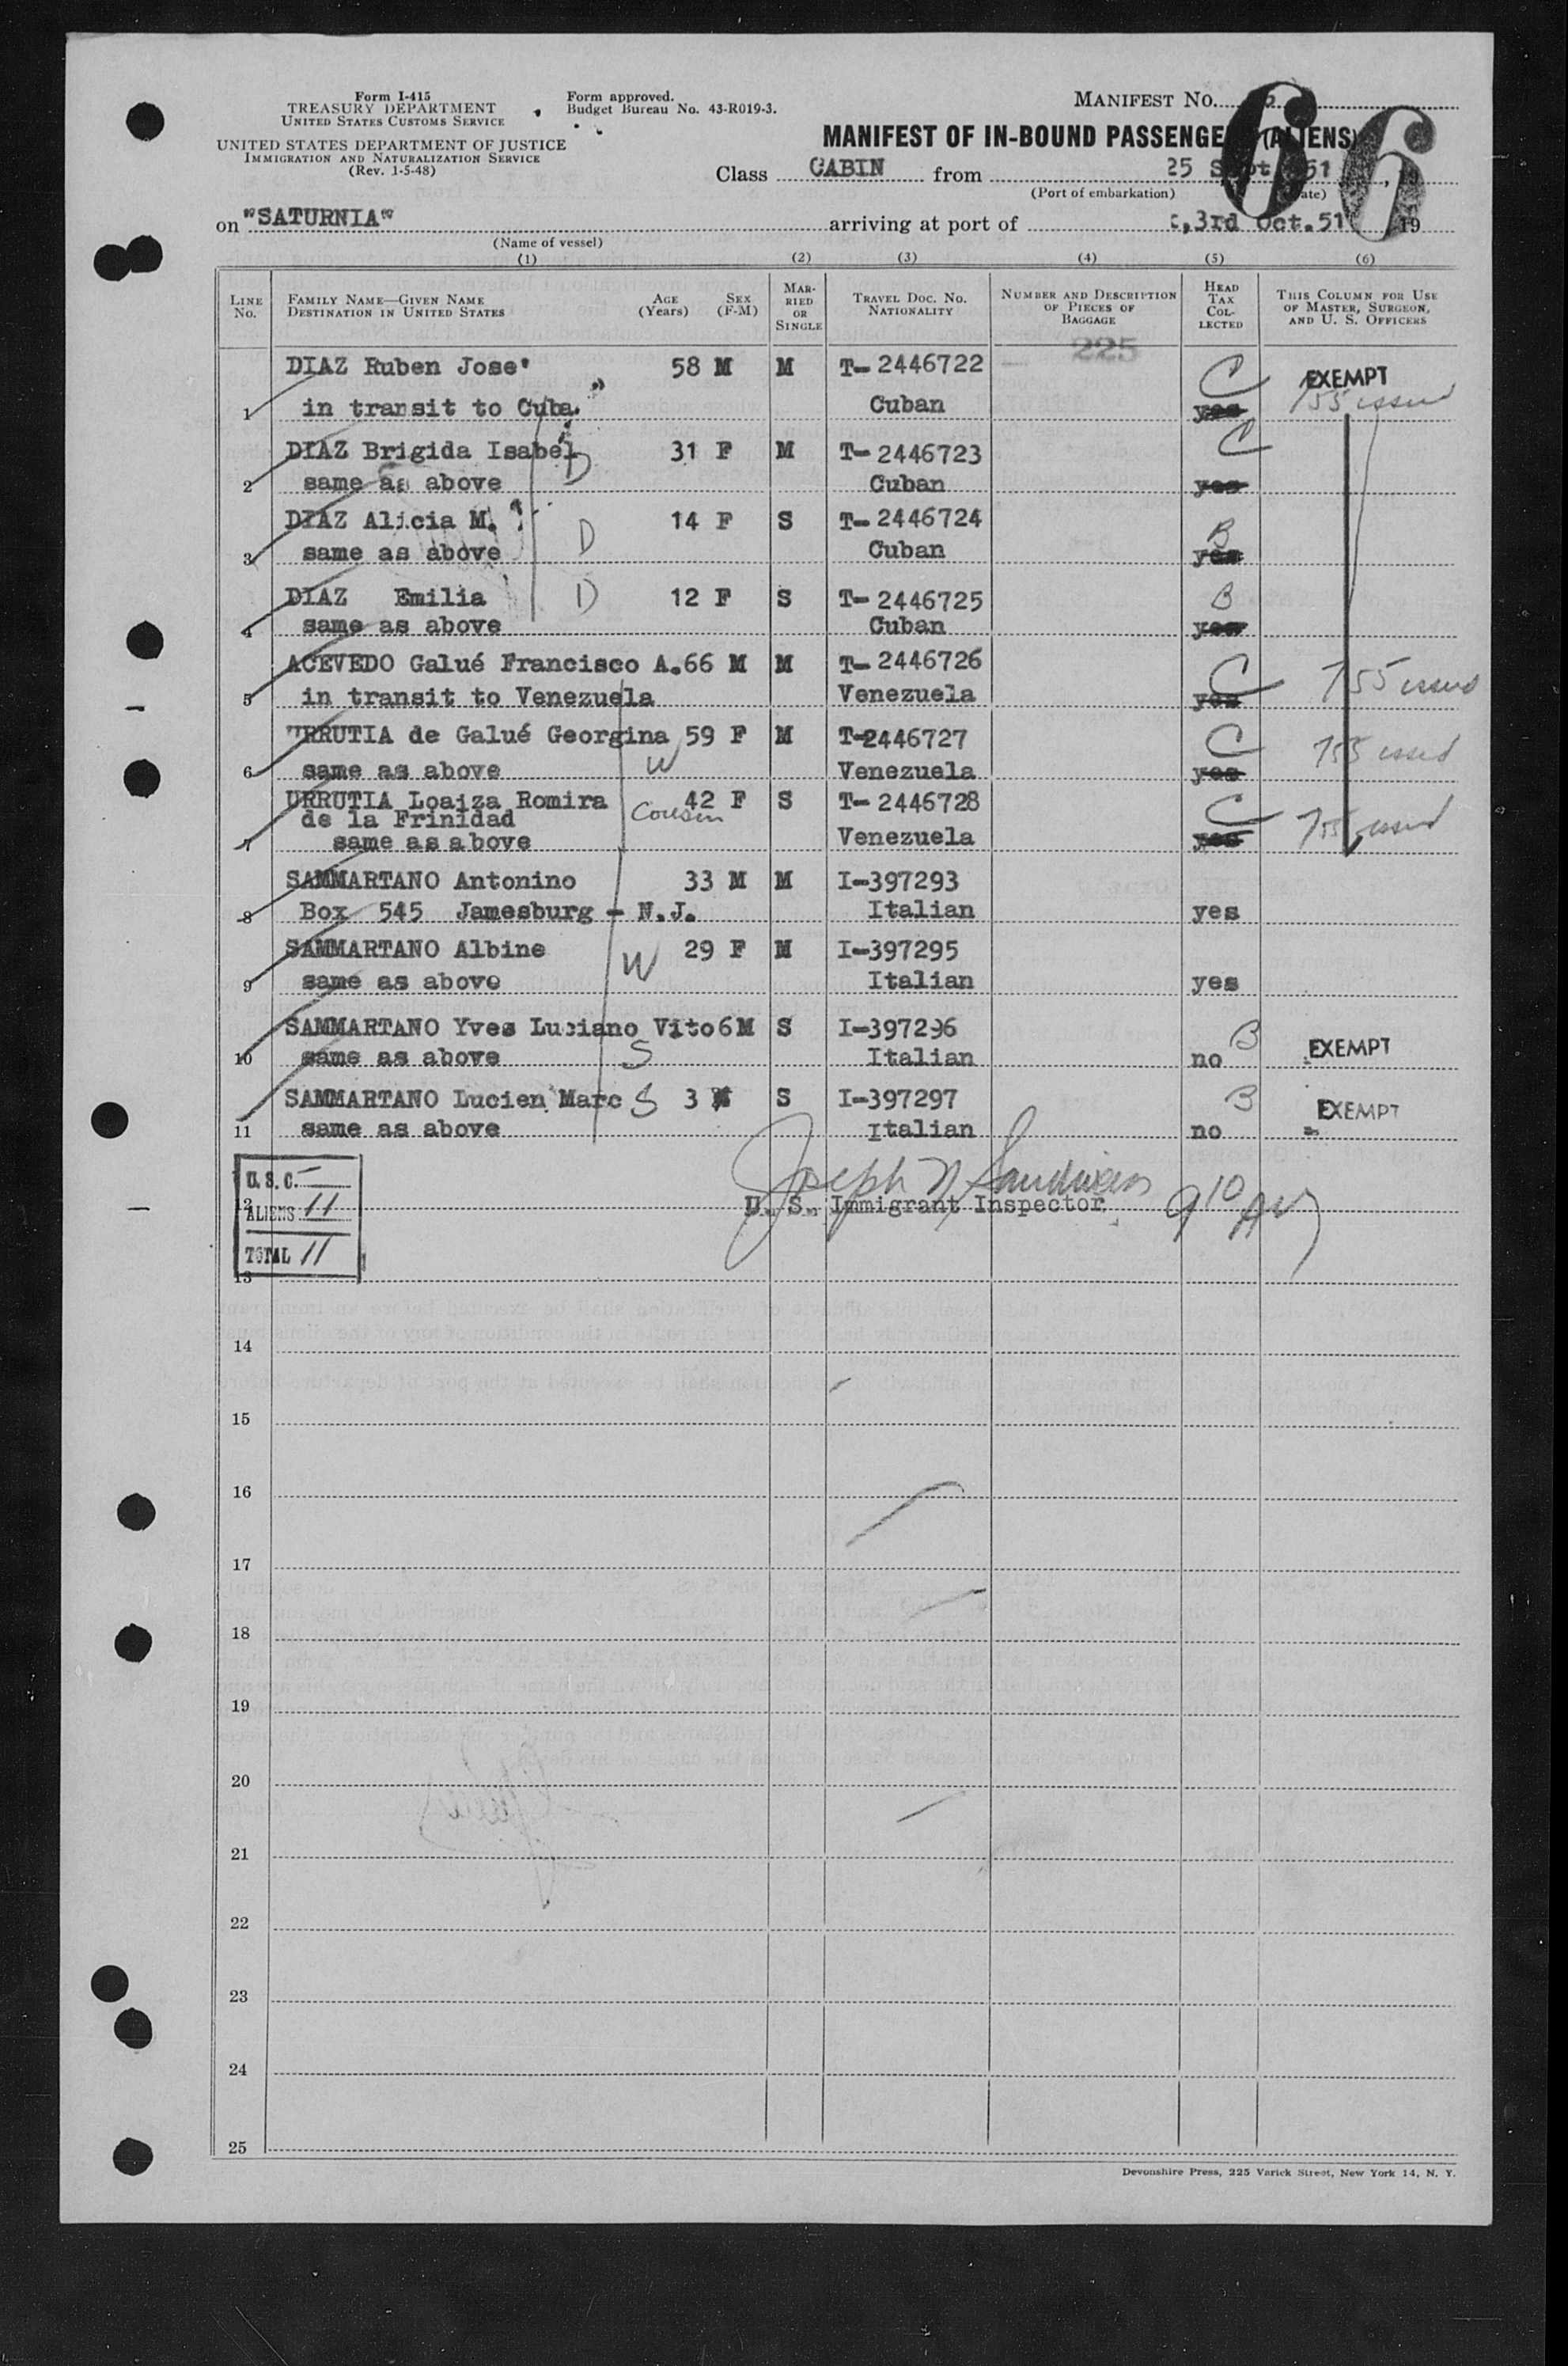 Form I-415
TREASURY DEPARTMENT
UNITED STATES CUSTOMS SERVICE
UNITED STATES DEPARTMENT OF JUSTICE
IMMIGRATION AND NATURALIZATION SERVICE
(Rev. 1-5-48)
Form approved.
Budget Bureau No. 43-R019-3.
MANIFEST NO.
66
MANIFEST OF IN-BOUND PASSENGE (ALIENS)
Class CABIN from 25 Sept 51, 19
(Port of embarkation) (Date)
on "SATURNIA" arriving at port of ,3rd Oct.51 19
(Name of vessel)
(1) (2) (3) (4) (5) (6)
LINE NO. FAMILY NAME—GIVEN NAME DESTINATION IN UNITED STATES AGE (Years) SEX (F-M) MARRIED OR SINGLE TRAVEL DOC. NO. NATIONALITY NUMBER AND DESCRIPTION OF PIECES OF BAGGAGE HEAD TAX COLLECTED THIS COLUMN FOR USE OF MASTER, SURGEON, AND U. S. OFFICERS
225
DIAZ Ruben Jose' 58 M M T-2446722 C EXEMPT
1 in transit to Cuba. Cuban yes 755 issued
DIAZ Brigida Isabel D 31 F M T-2446723 C
2 same as above Cuban yes
DIAZ Alicia M. D 14 F S T-2446724 B
3 same as above Cuban yes
DIAZ Emilia D 12 F S T-2446725 B
4 same as above Cuban yes
ACEVEDO Galué Francisco A. 66 M M T-2446726 C 755 issued
5 in transit to Venezuela Venezuela yes
URRUTIA de Galué Georgina 59 F M T-2446727 C 755 issued
6 same as above W Venezuela yes
URRUTIA Loaiza Romira 42 F S T-2446728 C
de la Frinidad Cousin 755 issued
7 same as above Venezuela yes
SAMMARTANO Antonino 33 M M I-397293
8 Box 545 Jamesburg - N.J. Italian yes
SAMMARTANO Albine W 29 F M I-397295
9 same as above Italian yes
SAMMARTANO Yves Luciano Vito 6 M S I-397296 B EXEMPT
10 same as above S Italian no
SAMMARTANO Lucien Marc S 3 M S I-397297 B EXEMPT
11 same as above Italian no
U.S.C. —
12 ALIENS 11
U. S. Immigrant Inspector 9 10 AM
TOTAL 11
13
14
15
16
17
18
19
20
21
22
23
24
25
Devonshire Press, 225 Varick Street, New York 14, N. Y.